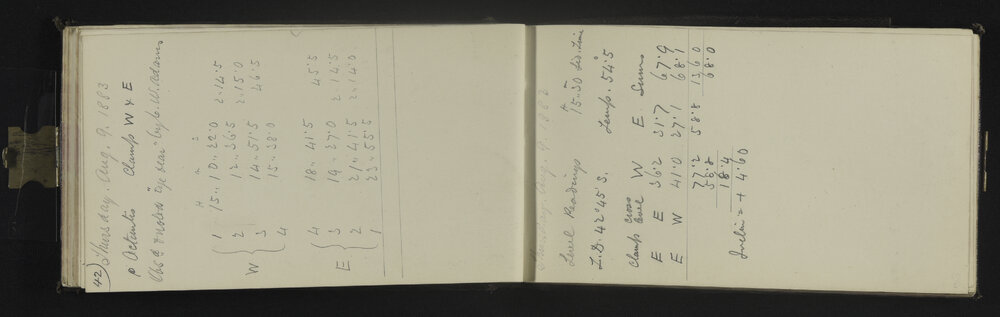 42) Thursday. Aug. 9. 1883
ρ Octantis Clamps W & E
Obs d & noted "Eye & ear" by C. W. Adams
H m s
W 1 15.. 10.. 22.0 2..14.5
2 12.. 36.5 2..15.0
3 14.. 51.5 46.5
4 15.. 38.0
E 4 18.. 41.5 45.5
3 19.. 27.0 2..14.5
2 21.. 41.5 2..14.0
1 23.. 55.5
Level Readings 15h.30m Sid. Time
Z.D. 42°45' S. Temp. 54°.5
Clamp Cross level W E Sums
E E 36.2 31.7 67.9
E W 41.0 27.1 68.1
77.2 58.8 136.0
58.8 68.0
18.4
Inclin = + 4.60